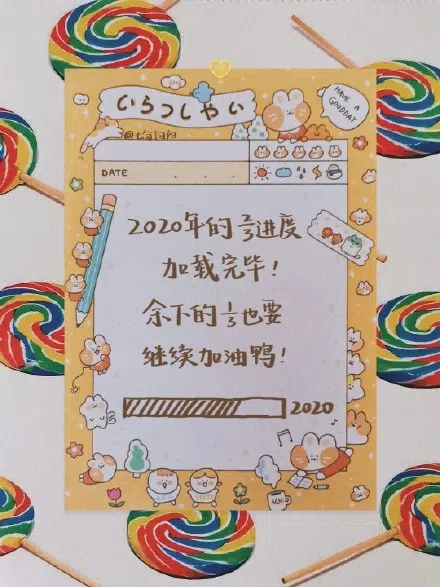 いらっしゃい
HAVE A
GOODDAY
DATE
2020年的⅔进度
加载完毕！
余下的⅓也要
继续加油鸭！
2020